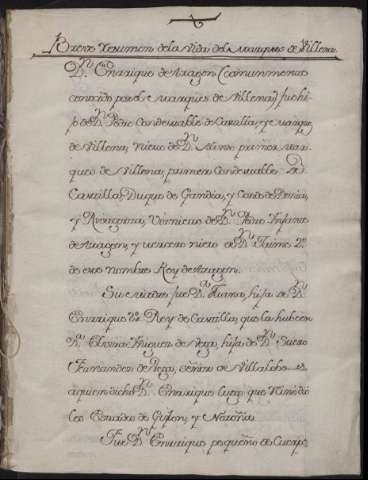 Breve Resumen de la Vida del Marques de Villena.
Dn. Enrrique de Aragon (comunmente
conocido por el Marques de Villena) fue hi-
jo de Dn. Pedro Condestable de Castilla, y Marques
de Villena; Nieto de Dn. Alonso primer Mar-
ques de Villena, primero Condestable de
Castilla, Duque de Gandia, y Conde de Denia,
y Rivagorza, Viznieto de Dn. Pedro Infante
de Aragon, y tercero nieto de Dn. Jaime 2o.
de este nombre Rey de Aragon.
Su madre fue Da. Juana, hija de Dn.
Enrrique 2o. Rey de Castilla, que la hubo en
Da. Elvira Iñiguez de Vega, hija de Dn. Suero
Fernandez de Vega, señor de Villalobos
a quien dicho Dn. Enrrique luego que
los Estados de Gijon, y Noroña.
Fue Dn. Enrrique pequeño de Cuerpo